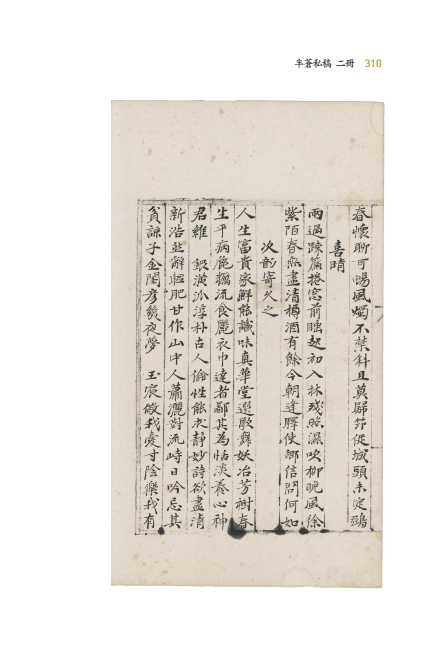 半蒼私稿 二冊 310
春懷聊可暢風燭不禁斜且莫歸笻促城頭未定鴉
喜晴
雨過疎簾捲窓前睡起初入林殘照濕吹柳晩風徐
紫陌春無盡清樽酒有餘今朝逢驛使鄉信問何如
次韵寄久之
人生富貴家鮮能識味真華堂選歌舞妖冶芳樹春
生平病 流食麗衣巾達者鄙其為恬淡養心神
君維 毅潢派淳朴古人倫性能求靜妙詩欲盡清
新浩然辭 肥甘作山中人蕭灑對流峙日吟忘其
貧諒子金閨彥幾夜夢 玉宸儆我愛寸陰樂我有